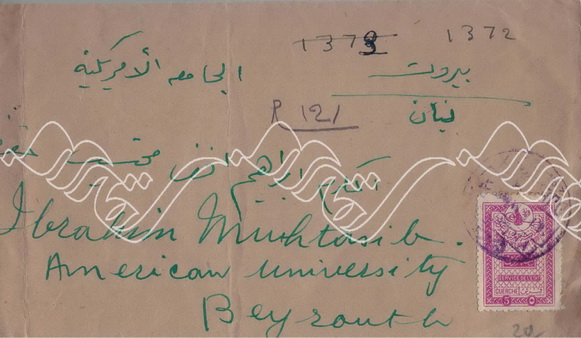 1373 1372
الجامعه الأمريكية بيروت
لبنان
R 121
ابراهيم
Ibrahim Muhtasib.
American university
Beyrouth
5
20